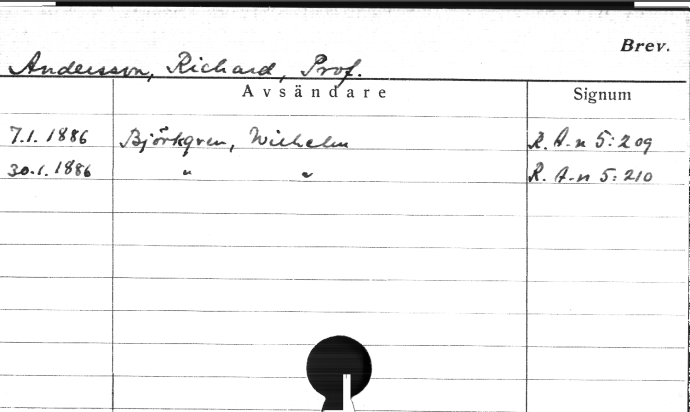 Brev.
Andersson, Richard, Prof.
Avsändare Signum
7.1. 1886 Björkgren, Wilhelm R. A-n 5:209
30.1. 1886 " " R. A-n 5:210